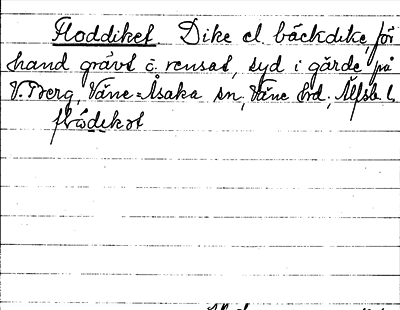 Floddiket Dike el. bäckdike, för
hand grävt o. rensat, syd i gärde på
V. Berg, Väne-Åsaka sn, Väne hd, Älfsb. l